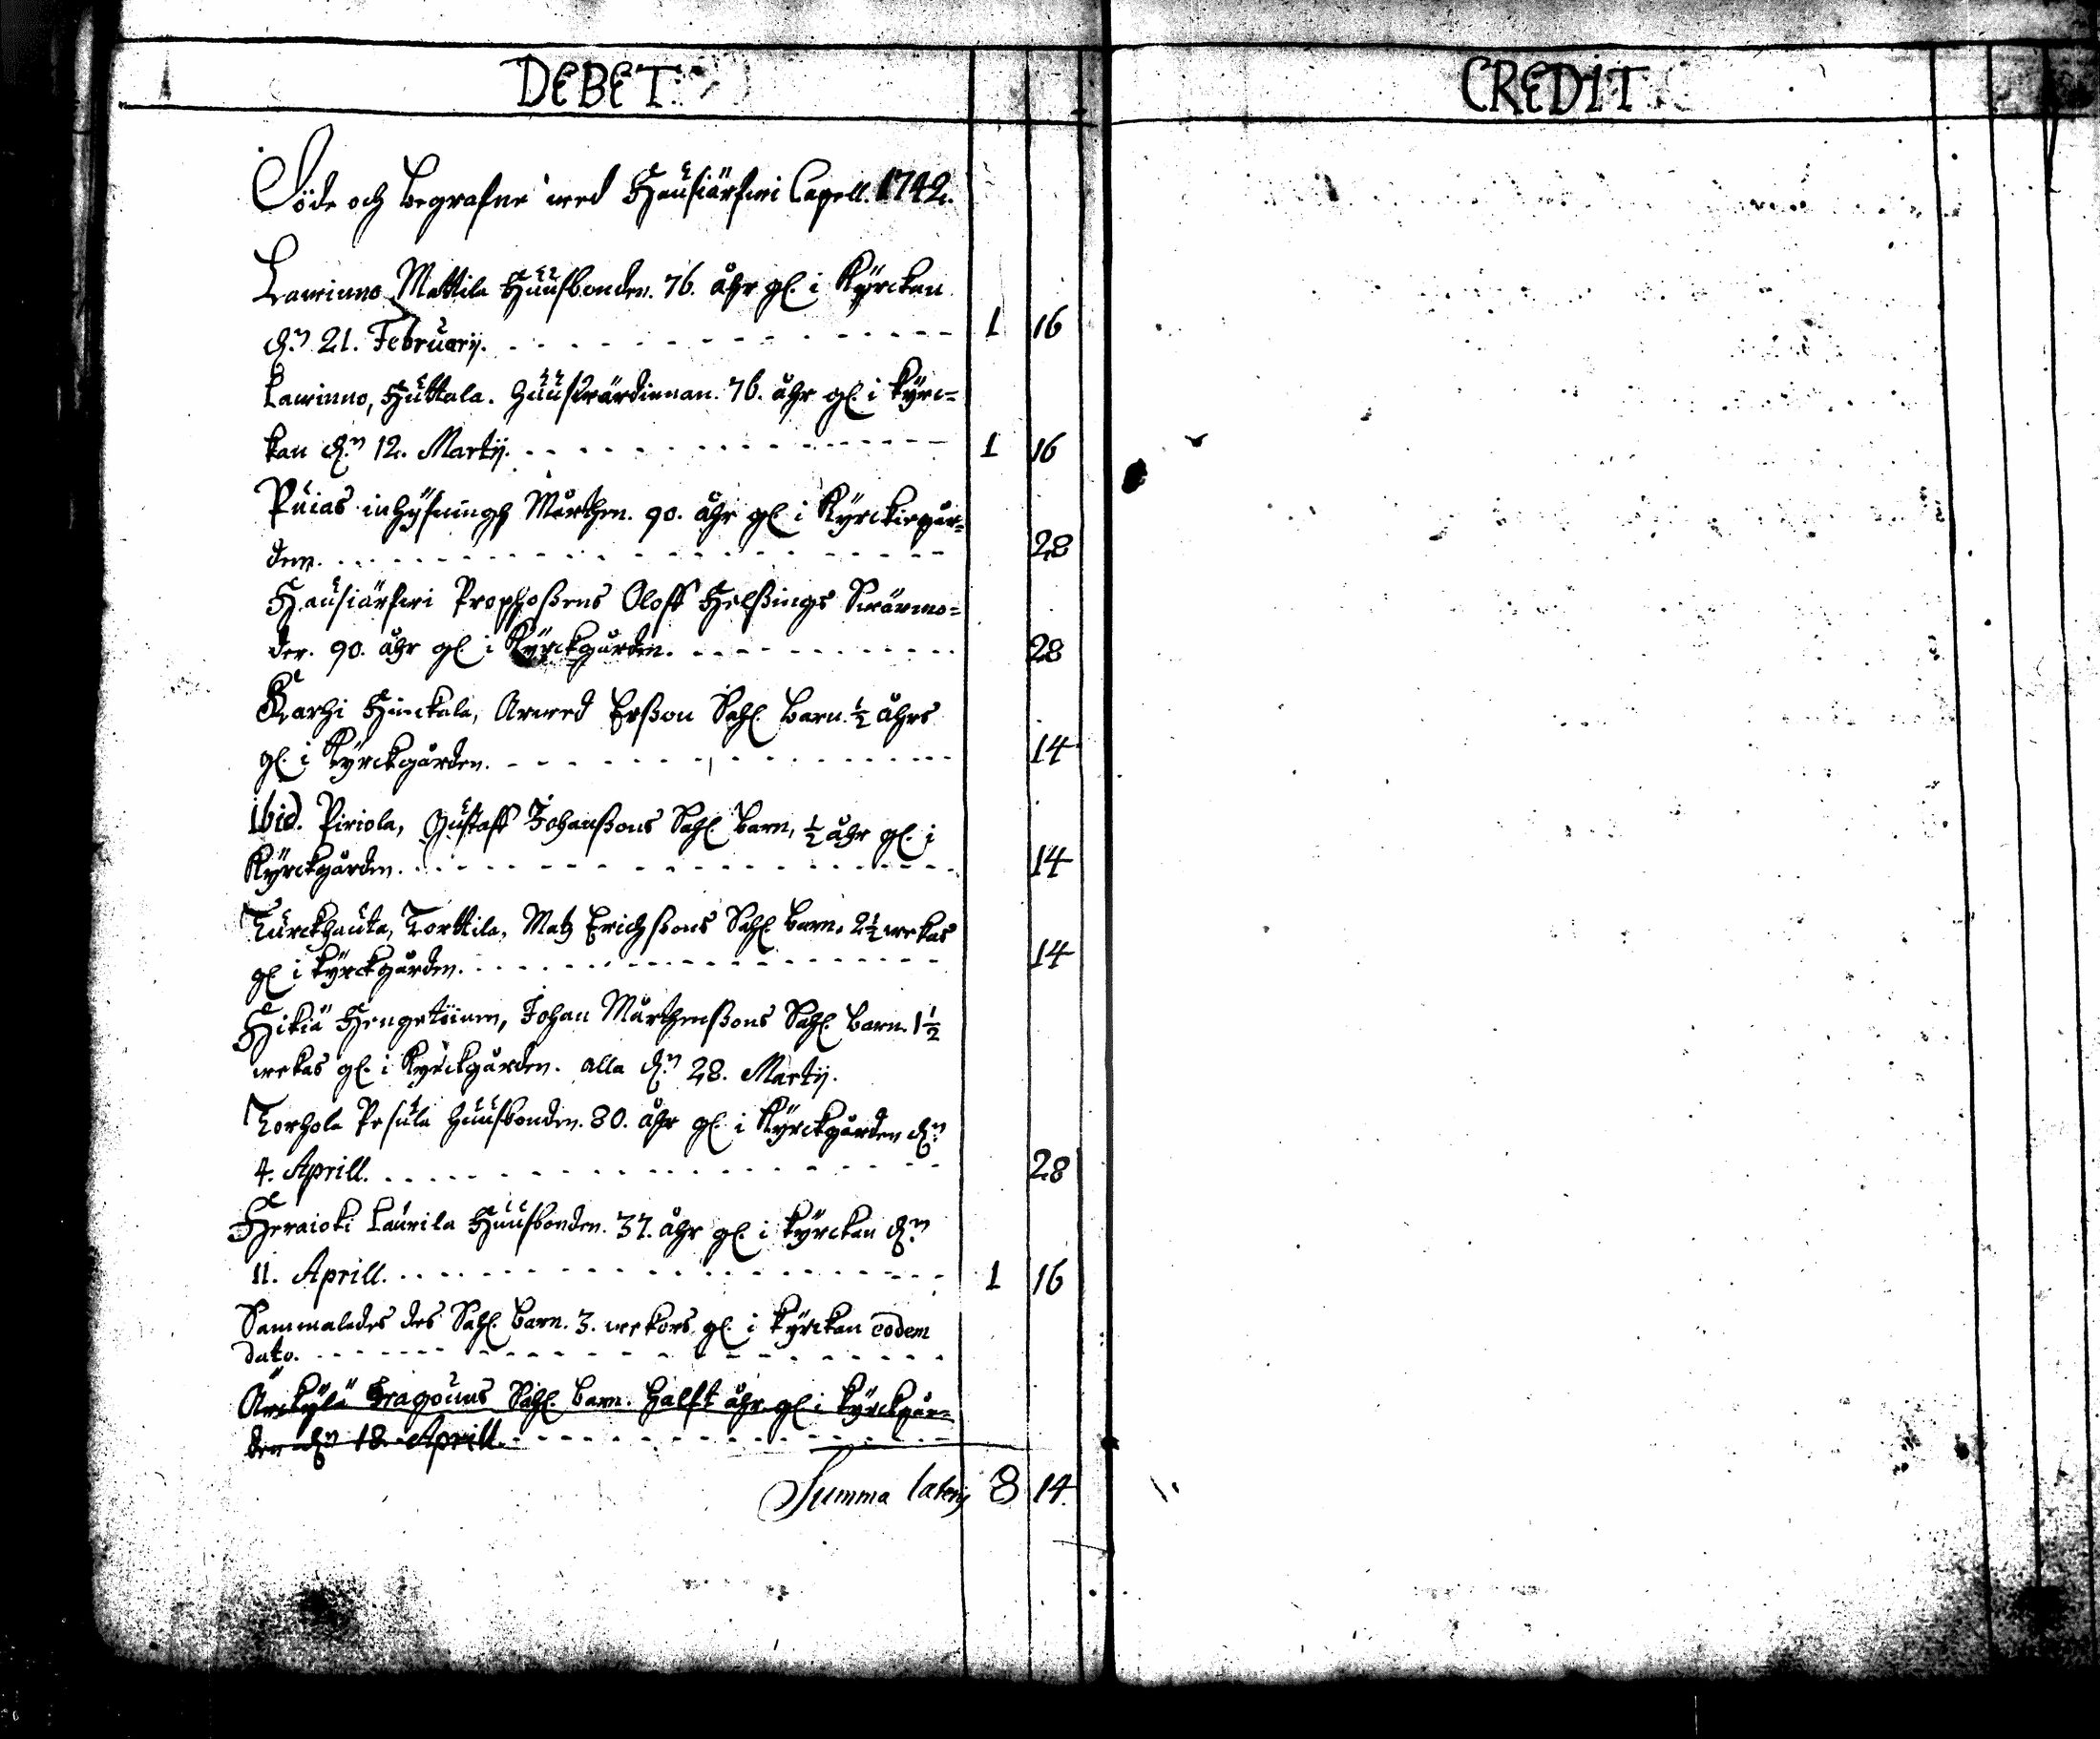 DEBET.
Döde och begrafne wed Hausiärfwi Capell. 1742.
Lawinno Mattila Huusbonden. 76. åhr gl. i Kyrckan
d.n 21. Februarij. 1 16
Lawinno, Huttala. Huuswärdinnan. 76. åhr gl. i Kyrc=
kan d.n 12. Martij. 1 16
Puias inhysningh Mårthen. 90. åhr gl. i Kyrckiegår=
den. 28
Hausiärfwi Prophossens Oloff Helssings Swärmo=
der. 90. åhr gl. i Kyrckgården. 28
Karhi Hinckala, Arwed Ersson Sahl. barn. ½ åhrs
gl. i Kyrckgården. 14
Ibid. Piriola, Gustaff Johanssons Sahl. barn, ½ åhr gl. i
Kyrckgården. 14
Turckhauta, Torttila, Matz Erichssons Sahl. barn. 2½ wekas
gl i Kyrckgården. 14
Hikiä Hengstöinen, Johan Mårthenssons Sahl. barn. 1½
wekas gl. i Kyrckgården. alla d.n 28. Martij.
Torhola Pesula Huusbonden. 80. åhr gl. i Kyrckgården d.n
4. Aprill. 28
Heraioki Laurila Huusbonden. 37. åhr gl. i Kyrckan d.n
11. Aprill. 1 16
Sammaledes des Sahl. barn. 3. wekors gl. i Kyrckan eodem
dato.
Arckylä Dragouns Sahl. barn. halft åhr gl i Kyrckgår=
den d.n 18. Aprill.
Summa lateris 8 14.
CREDIT